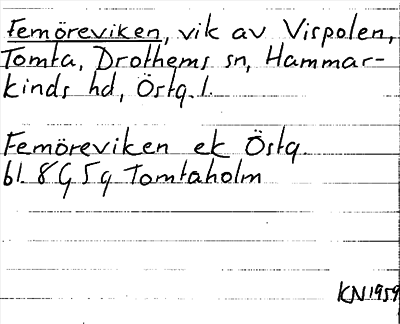 Femöreviken, vik av Vispolen,
Tomta, Drothems sn, Hammar-
kinds hd, Östg. l.
Femöreviken ek Östg.
bl. 8G 5g Tomtaholm
KN 1959